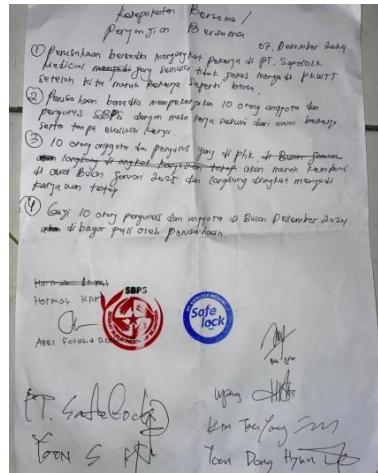 Kesepakatan Bersama /
Perjanjian Bersama
07, Desember 2024
① Perusahaan bersedia mengangkat pekerja di PT. Safelock
Medical menjadi yang semula tidak jelas menjadi PKWTT
setelah kita masuk bekerja seperti biasa.
② Perusahaan bersedia mempekerjakan 10 orang anggota dan
pengurus SBPS dengan masa kerja sesuai dari awal bekerja
serta tanpa evaluasi kerja.
③ 10 orang anggota dan pengurus yang di PHK di Bulan Januari
akan langsung di angkat karyawan tetap akan masuk kembali
di awal Bulan Januari 2025 dan langsung diangkat menjadi
karyawan tetap
④ Gaji 10 orang pengurus dan anggota di Bulan Desember 2024
akan di bayar full oleh perusahaan.
Hormat
Hormat Kami
SBPS
Safe
lock
PT. Safelock
Kim Tae Yang
Yoon S
Yoon Dong Hyun